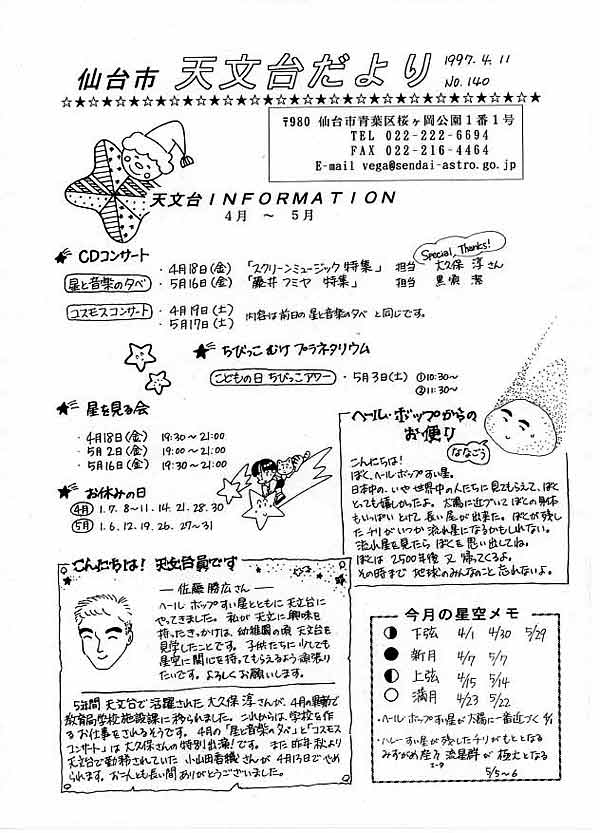 仙台市 天文台だより
1997. 4. 11
No. 140
〒980 仙台市青葉区桜ヶ岡公園1番1号
TEL 022-222-6694
FAX 022-216-4464
E-mail vega@sendai-astro.go.jp
天文台INFORMATION
4月 ～ 5月
CDコンサート
Special, Thanks!
星と音楽の夕べ
・4月18日(金) 「スクリーンミュージック特集」 担当 大久保 淳さん
・5月16日(金) 「藤井フミヤ 特集」 担当
コスモスコンサート
・4月19日(土)
・5月17日(土)
内容は前日の星と音楽の夕べ と同じです。
ちびっこむけプラネタリウム
こどもの日 ちびっこアワー ・5月3日(土) ①10:30～
②11:30～
星を見る会
・4月18日(金) 19:30～21:00
・5月2日(金) 19:00～21:00
・5月16日(金) 19:30～21:00
お休みの日
4月 1.7.8～11.14.21.28.30
5月 1.6.12.19.26.27～31
ヘール・ボップからの
お便り
ななごう
こんにちは!
ぼく、ヘールボップすい星。
日本中の、いや世界中の人たちに見てもらえて、ぼく
とっても嬉しかったよ。太陽に近づいてぼくの身体
もいっぱいとけて長い尾が出来た。ぼくが残し
たチリがいつか流れ星になるかもしれない。
流れ星を見たらぼくを思い出してね。
ぼくは2500年後又帰ってくるよ。
その時まで地球のみんなのこと忘れないよ。
こんにちは! 天文台員です
―佐藤 勝広さん―
ヘール ボップすい星とともに天文台に
やってきました。私が天文に興味を
持ったきっかけは、幼稚園の頃天文台を
見学したことです。子供たちに少しでも
星空に関心を持ってもらえるよう頑張り
たいです。よろしくお願いします。
5年間天文台で活躍された大久保淳さんが、4月の異動で
教育局学校施設課に移られました。これからは、学校を作
るお仕事をされるそうです。4月の「星と音楽の夕べ」と「コスモス
コンサート」は大久保さんの特別出演!です。また昨年秋より
天文台で勤務されていた小山田香織さんが4月13日でやめ
られます。お二人とも長い間ありがとうございました。
今月の星空メモ
下弦 4/1 4/30 5/29
新月 4/7 5/7
上弦 4/15 5/14
満月 4/23 5/22
・ヘール ボップすい星が太陽に一番近づく 4/1
・ハレーすい星が残したチリがもととなる
みずがめ座η流星群が極大となる
エータ
5/5～6